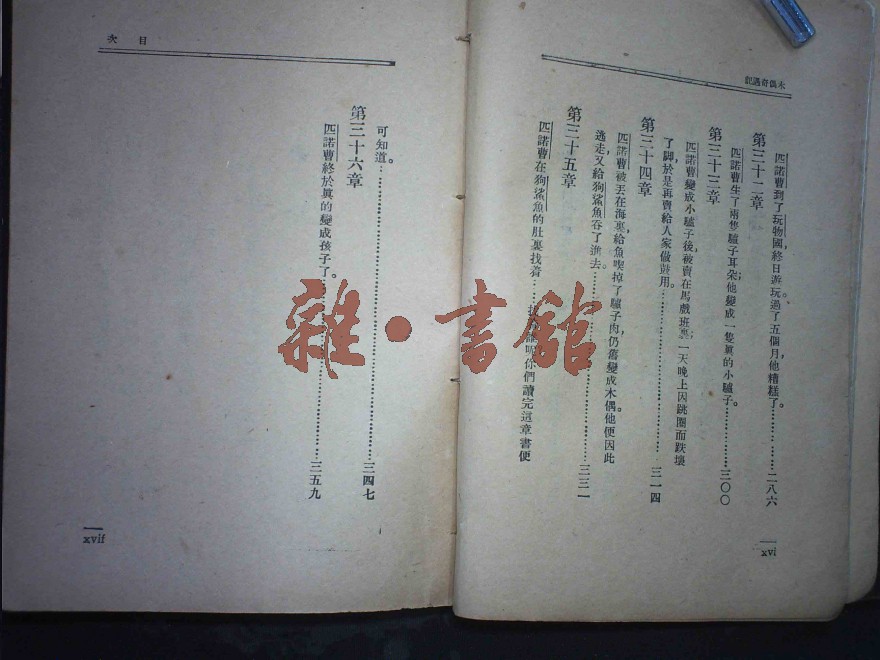 木偶奇遇記
匹諾曹到了玩物國，終日遊玩過了五個月，他糟糕了。……二八六
第三十二章
匹諾曹生了兩隻驢子耳朵；他變成一隻眞的小驢子。……三〇〇
第三十三章
匹諾曹變成小驢子後，被賣在馬戲班裏；一天晚上因跳圈而跌壞
了脚，於是再賣給人家做鼓用。……三一四
第三十四章
匹諾曹被丟在海裏，給魚喫掉了驢子肉，仍舊變成木偶。他便因此
逃走，又給狗鯊魚吞了進去。……三三一
第三十五章
匹諾曹在狗鯊魚的肚裏找着……你們讀完這章書便
xvi
目次
可知道。……三四七
第三十六章
匹諾曹終於眞的變成孩子了。……三五九
xvii
雜·書館